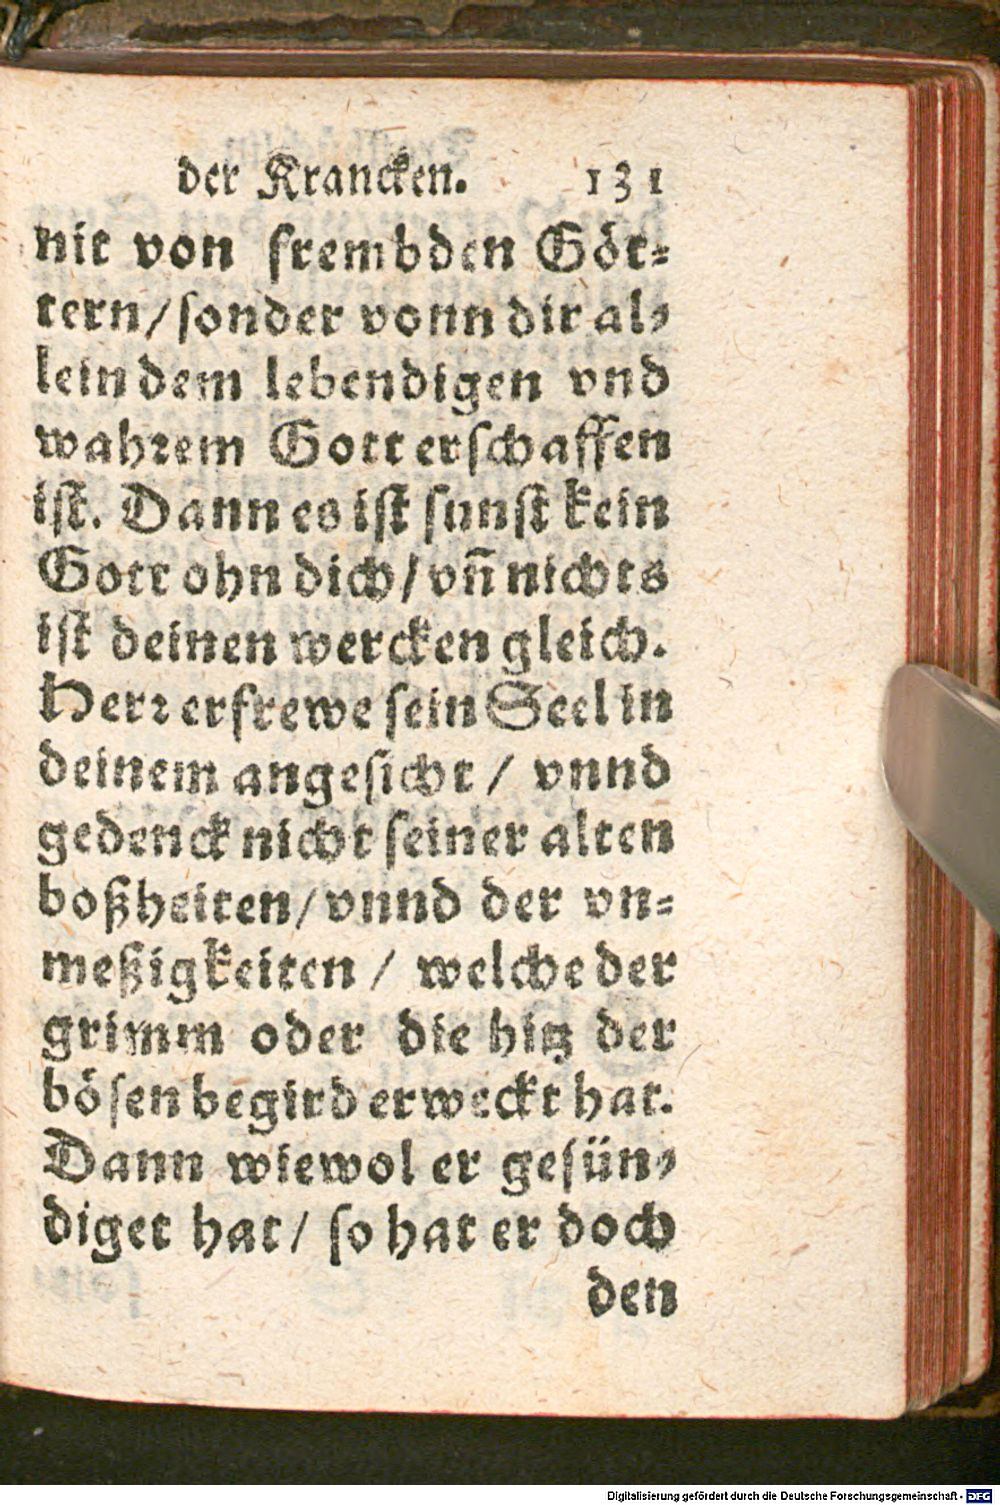 der Krancken. 131
nit von frembden Göt-
tern/sonder vonn dir al-
lein dem lebendigen vnd
wahrem Gott erschaffen
ist. Dann es ist sunst kein
Gott ohn dich/ vñ nichts
ist deinen wercken gleich.
Herr erfrewe sein Seel in
deinem angesicht / vnnd
gedenck nicht seiner alten
boßheiten/ vnnd der vn-
meßigkeiten / welche der
grimm oder die hitz der
bösen begird erweckt hat.
Dann wiewol er gesün-
diget hat/ so hat er doch
den
Digitalisierung gefördert durch die Deutsche Forschungsgemeinschaft - DFG